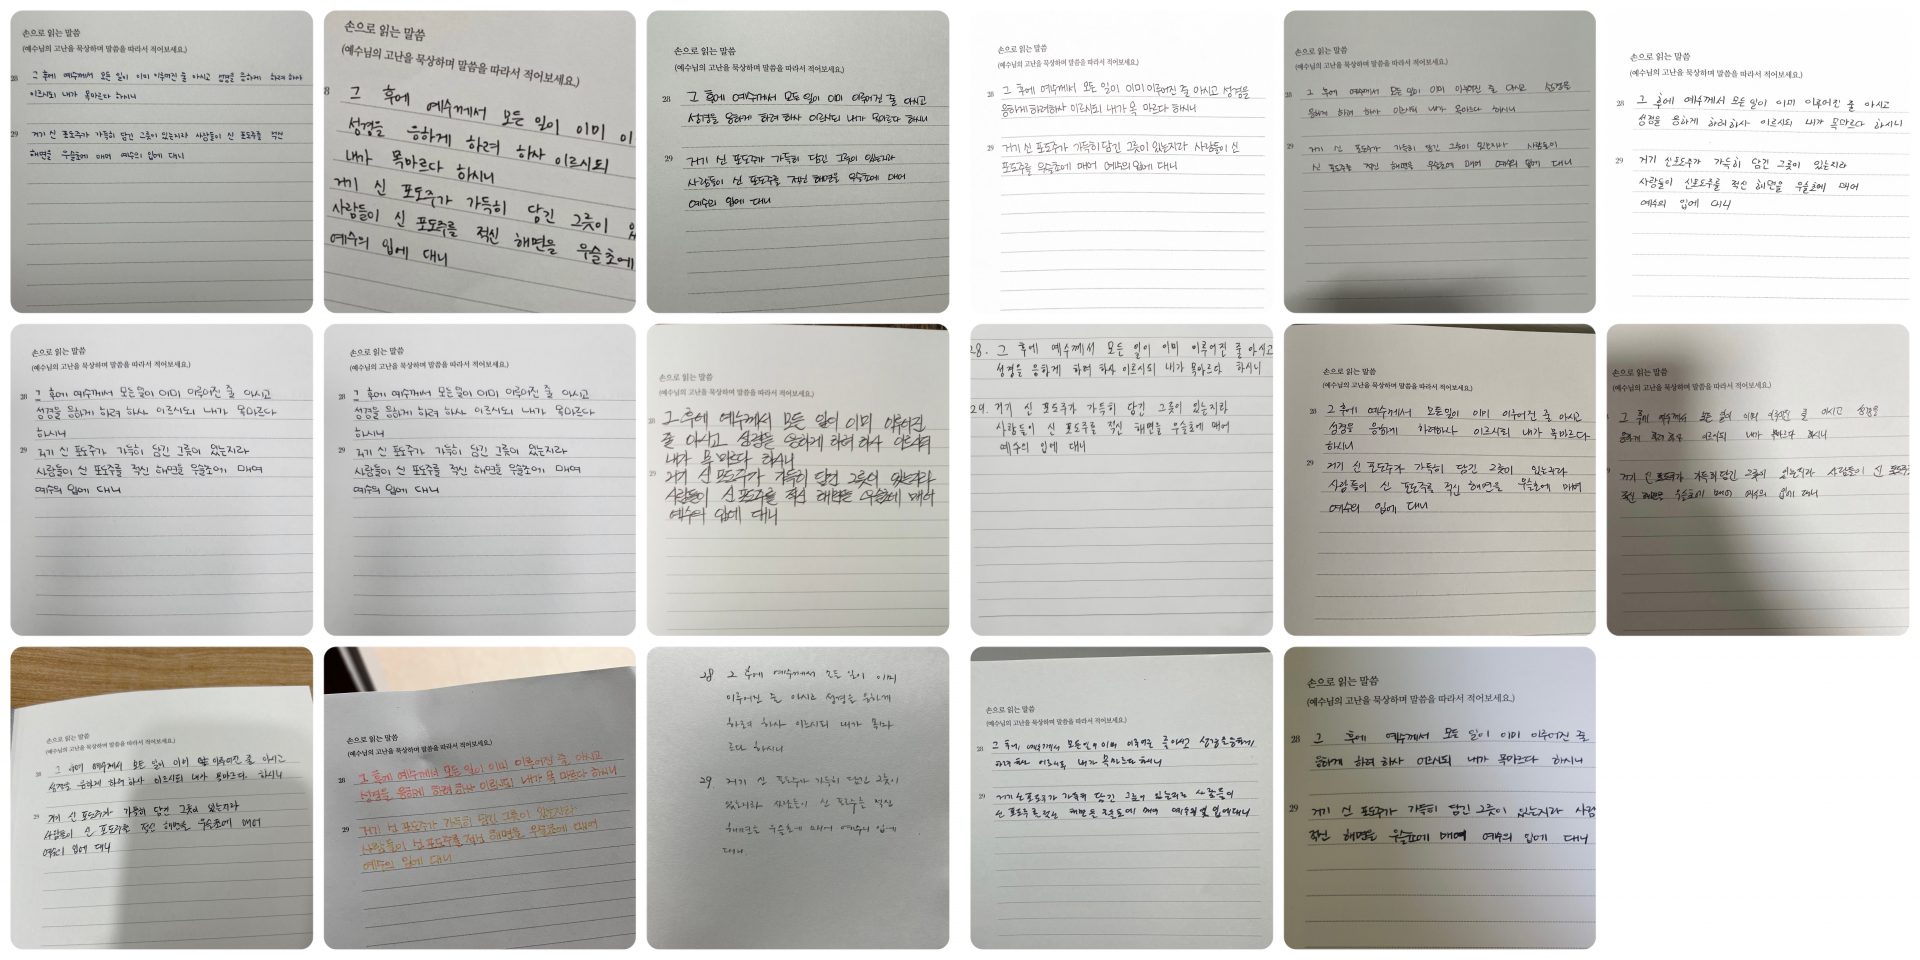 손으로 읽는 말씀
(예수님의 고난을 묵상하며 말씀을 따라서 적어보세요.)
28 그 후에 예수께서 모든 일이 이미 이루어진 줄 아시고 성경을 응하게 하려 하사
이르시되 내가 목마르다 하시니
29 거기 신 포도주가 가득히 담긴 그릇이 있는지라 사람들이 신 포도주를 적신
해면을 우슬초에 매어 예수의 입에 대니
손으로 읽는 말씀
(예수님의 고난을 묵상하며 말씀을 따라서 적어보세요.)
8 그 후에 예수께서 모든 일이 이미 이
성경을 응하게 하려 하사 이르시되
내가 목마르다 하시니
거기 신 포도주가 가득히 담긴 그릇이
사람들이 신 포도주를 적신 해면을 우슬초에
예수의 입에 대니
손으로 읽는 말씀
(예수님의 고난을 묵상하며 말씀을 따라서 적어보세요.)
28 그 후에 예수께서 모든 일이 이미 이루어진 줄 아시고
성경을 응하게 하려 하사 이르시되 내가 목마르다 하시니
29 거기 신 포도주가 가득히 담긴 그릇이 있는지라
사람들이 신 포도주를 적신 해면을 우슬초에 매어
예수의 입에 대니
손으로 읽는 말씀
(예수님의 고난을 묵상하며 말씀을 따라서 적어보세요.)
28 그 후에 예수께서 모든 일이 이미 이루어진 줄 아시고 성경을
응하게 하려하사 이르시되 내가 목 마르다 하시니
29 거기 신 포도주가 가득히 담긴 그릇이 있는지라 사람들이 신
포도주를 우슬초에 매어 예수의 입에 대니
손으로 읽는 말씀
(예수님의 고난을 묵상하며 말씀을 따라서 적어보세요.)
28 그 후에 예수께서 모든 일이 이미 이루어진 줄 아시고 성경을
응하게 하려 하사 이르시되 내가 목마르다 하시니
29 거기 신 포도주가 가득히 담긴 그릇이 있는지라 사람들이
신 포도주를 적신 해면을 우슬초에 매어 예수의 입에 대니
손으로 읽는 말씀
(예수님의 고난을 묵상하며 말씀을 따라서 적어보세요.)
28 그 후에 예수께서 모든 일이 이미 이루어진 줄 아시고
성경을 응하게 하려하사 이르시되 내가 목마르다 하시니
29 거기 신포도주가 가득히 담긴 그릇이 있는지라
사람들이 신포도주를 적신 해면을 우슬초에 매어
예수의 입에 대니
손으로 읽는 말씀
(예수님의 고난을 묵상하며 말씀을 따라서 적어보세요.)
28 그 후에 예수께서 모든일이 이미 이루어진 줄 아시고
성경을 응하게 하려 하사 이르시되 내가 목마르다
하시니
29 거기 신 포도주가 가득히 담긴 그릇이 있는지라
사람들이 신 포도주를 적신 해면을 우슬초에 매어
예수의 입에 대니
손으로 읽는 말씀
(예수님의 고난을 묵상하며 말씀을 따라서 적어보세요.)
28 그 후에 예수께서 모든일이 이미 이루어진 줄 아시고
성경을 응하게 하려 하사 이르시되 내가 목마르다
하시니
29 거기 신 포도주가 가득히 담긴 그릇이 있는지라
사람들이 신 포도주를 적신 해면을 우슬초에 매여
예수의 입에 대니
손으로 읽는 말씀
(예수님의 고난을 묵상하며 말씀을 따라서 적어보세요.)
28 그 후에 예수께서 모든 일이 이미 이루어진
줄 아시고 성경을 응하게 하려 하사 이르시되
내가 목 마르다 하시니
29 거기 신 포도주가 가득히 담긴 그릇이 있는지라
사람들이 신 포도주를 적신 해면을 우슬초에 매어
예수의 입에 대니
28. 그 후에 예수께서 모든 일이 이미 이루어진 줄 아시고
성경을 응하게 하려 하사 이르시되 내가 목마르다 하시니
29. 거기 신 포도주가 가득히 담긴 그릇이 있는지라
사람들이 신 포도주를 적신 해면을 우슬초에 매어
예수의 입에 대니
손으로 읽는 말씀
(예수님의 고난을 묵상하며 말씀을 따라서 적어보세요.)
28 그 후에 예수께서 모든일이 이미 이루어진 줄 아시고
성경을 응하게 하려하사 이르시되 내가 목마르다
하시니
29 거기 신 포도주가 가득히 담긴 그릇이 있는지라
사람들이 신 포도주를 적신 해면을 우슬초에 매여
예수의 입에 대니
손으로 읽는 말씀
(예수님의 고난을 묵상하며 말씀을 따라서 적어보세요.)
그 후에 예수께서 모든 일이 이미 이루어진 줄 아시고 성경을
응하게 하려 하사 이르시되 내가 목마르다 하시니
거기 신 포도주가 가득히 담긴 그릇이 있는지라 사람들이 신
적신 해면을 우슬초에 매어 예수의 입에 대니
손으로 읽는 말씀
(예수님의 고난을 묵상하며 말씀을 따라서 적어보세요.)
28 그 후에 예수께서 모든 일이 이미 이루어진 줄 아시고
성경을 응하게 하려 하사 이르시되 내가 목마르다 하시니
29 거기 신 포도주가 가득히 담긴 그릇이 있는지라
사람들이 신 포도주를 적신 해면을 우슬초에 매어
예수의 입에 대니
손으로 읽는 말씀
(예수님의 고난을 묵상하며 말씀을 따라서 적어보세요.)
28 그 후에 예수께서 모든 일이 이미 이루어진 줄 아시고
성경을 응하게 하려 하사 이르시되 내가 목 마르다 하시니
29 거기 신 포도주가 가득히 담긴 그릇이 있는지라
사람들이 신 포도주를 적신 해면을 우슬초에 매어
예수의 입에 대니
28 그 후에 예수께서 모든 일이 이미
이루어진 줄 아시고 성경을 응하게
하려 하사 이르시되 내가 목마
르다 하시니
29. 거기 신 포도주가 가득히 담긴 그릇이
있는지라 사람들이 신 포도주를 적신
해면을 우슬초에 매어 예수의 입에
대니.
손으로 읽는 말씀
(예수님의 고난을 묵상하며 말씀을 따라서 적어보세요.)
28 그 후에 예수께서 모든일이 이미 이루어진 줄 아시고 성경을 응하게
하려 하사 이르시되 내가 목마르다 하니
29 거기 신 포도주가 가득히 담긴 그릇이 있는지라 사람들이
신 포도주를 적신 해면을 우슬초에 매어 예수의 입에 대니
손으로 읽는 말씀
(예수님의 고난을 묵상하며 말씀을 따라서 적어보세요.)
28 그 후에 예수께서 모든 일이 이미 이루어진 줄
응하게 하려 하사 이르시되 내가 목마르다 하시니
29 거기 신 포도주가 가득히 담긴 그릇이 있는지라 사람
적신 해면을 우슬초에 매여 예수의 입에 대니